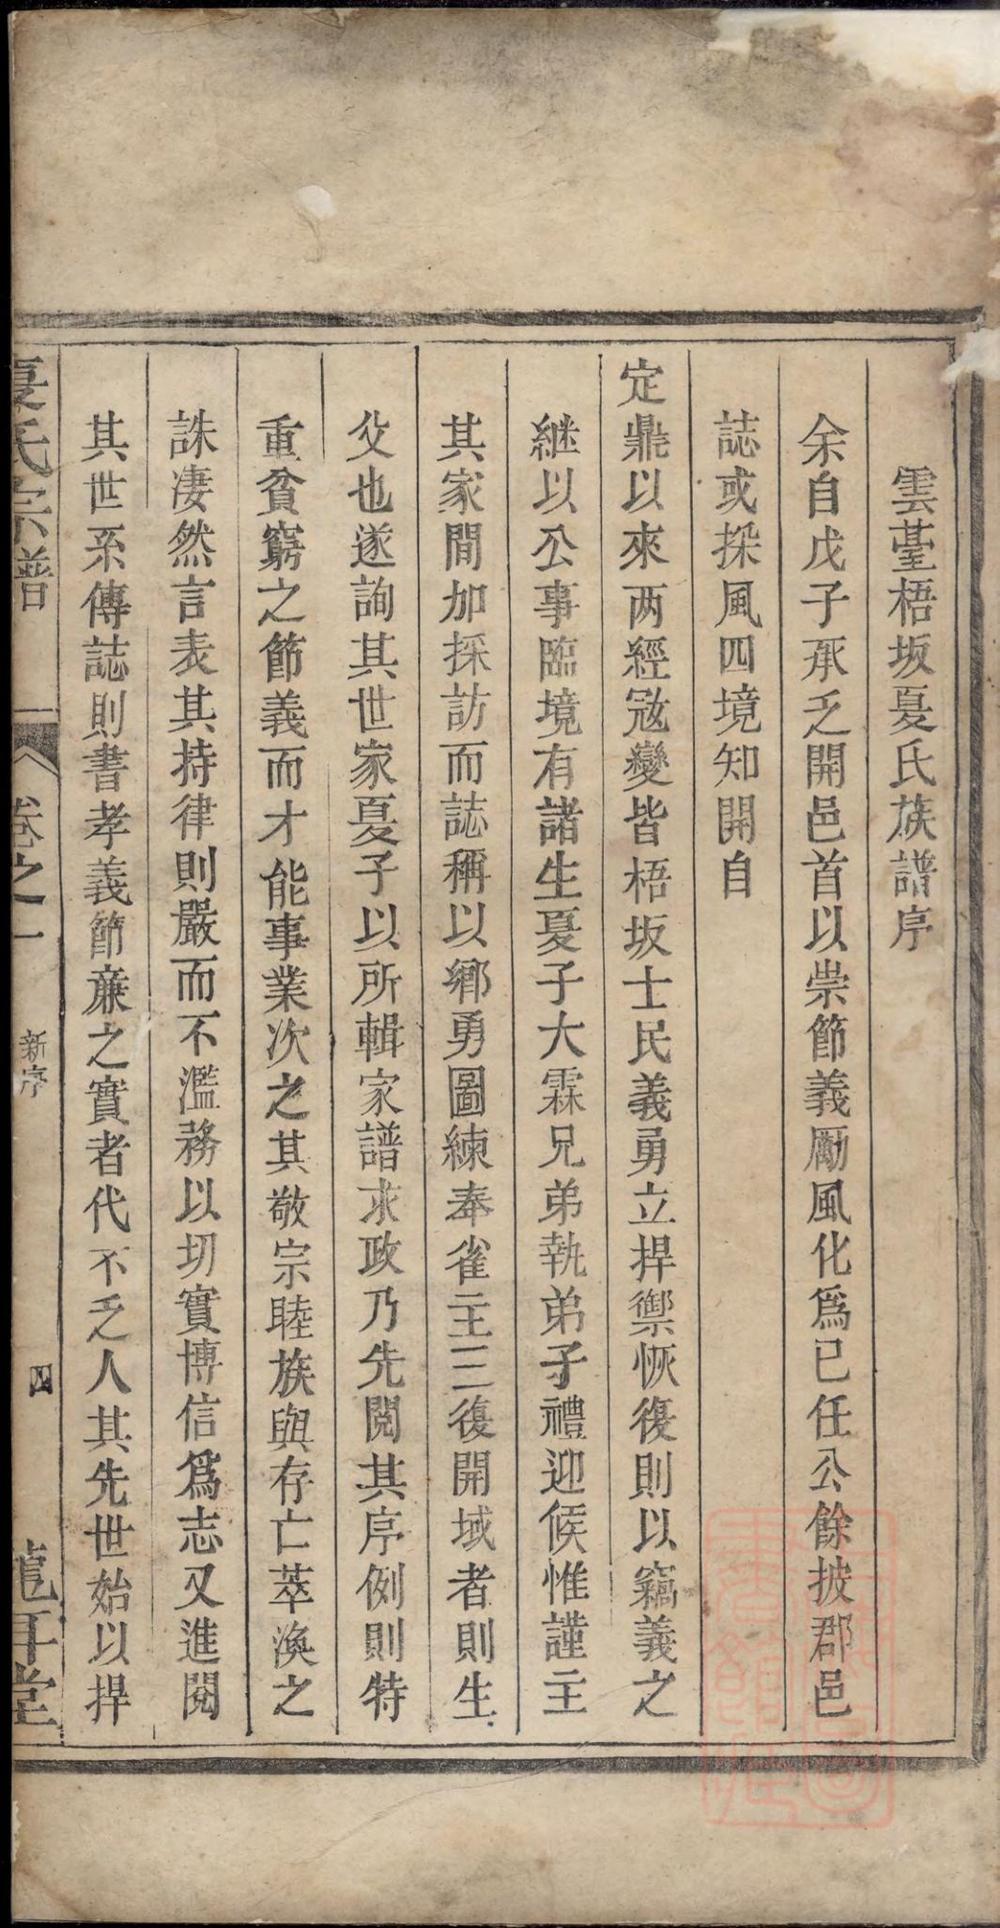 雲臺梧坂夏氏族譜序
余自戊子承乏開邑首以崇節義勵風化爲已任公餘披郡邑
誌或採風四境知開自
定鼎以來两經寇變皆梧坂士民義勇立捍禦恢復則以竊義之
継以公事臨境有諸生夏子大霖兄弟執弟子禮迎候惟謹主
其家間加採訪而誌稱以鄉勇圖練奉雀主三復開域者則生
父也遂詢其世家夏子以所輯家譜求政乃先閱其序例則特
重貧窮之節義而才能事業次之其敬宗睦族與存亡萃渙之
誅凄然言表其持律則嚴而不濫務以切實博信爲志又進閱
其世系傳誌則書孝義節廉之實者代不乏人其先世始以捍
夏氏宗譜
卷之一
新序
四
龍耳堂